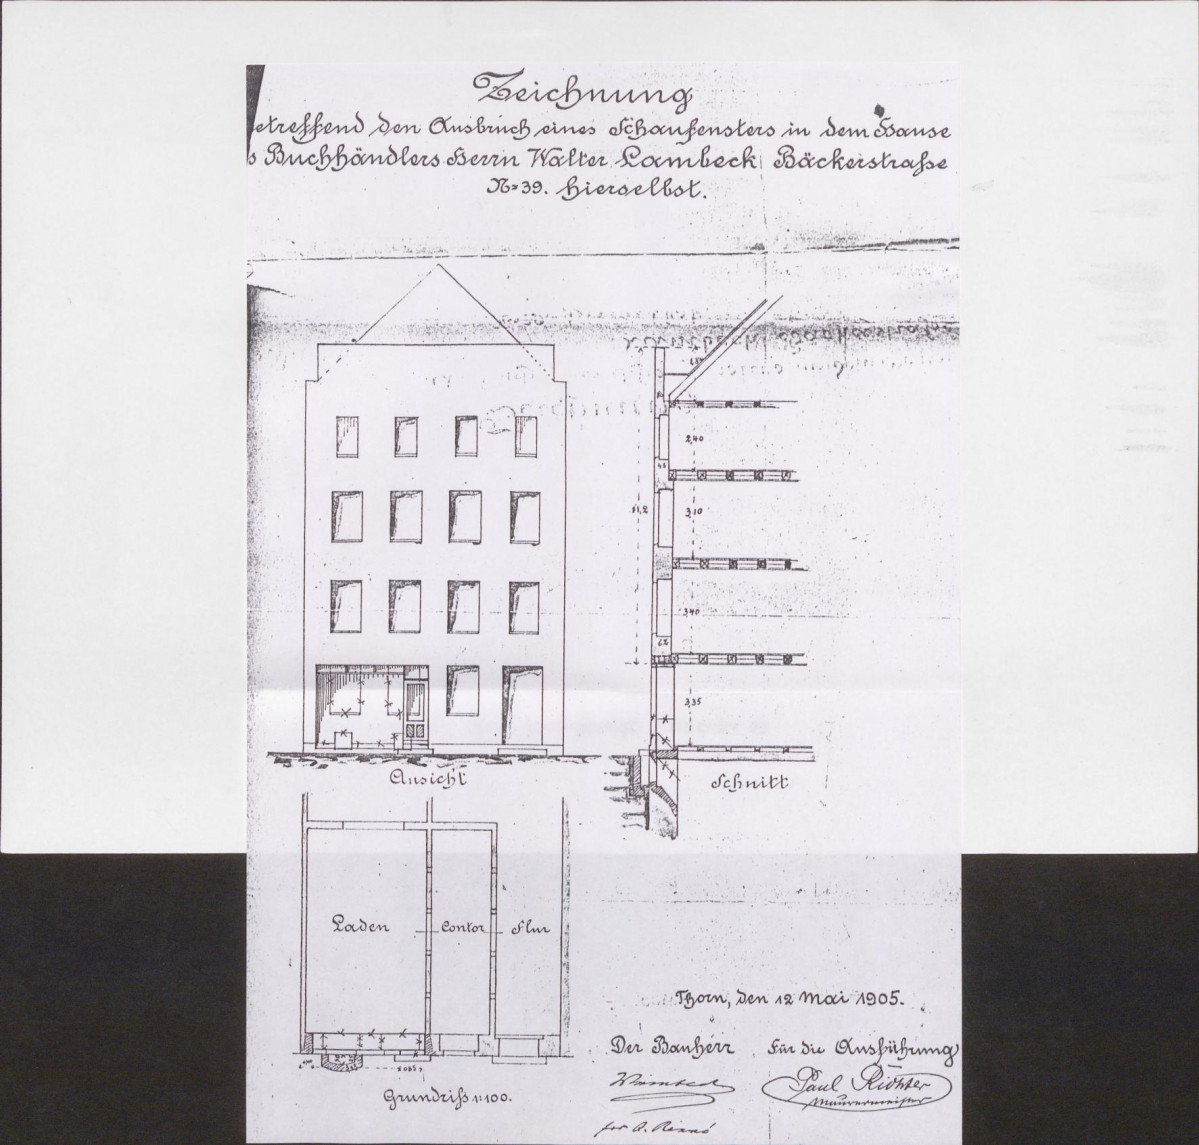 Zeichnung
etreffend den Ausbruch eines Schaufensters in dem Hause
s Buchhändlers Herrn Walter Lambeck Bäckerstraße
No 39. hierselbst.
2,40
11,2
3,10
3,40
3,35
Ansicht
Schnitt
Laden
Contor
Flur
Thorn, den 12 Mai 1905.
Der Bauherr
Für die Ausführung
Paul Richter
Maurermeister
Grundriß 1:100.